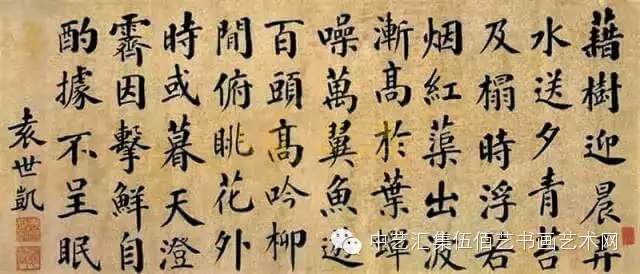 藉樹迎晨
水送夕青
及榻時浮
烟紅蕖出波
漸髙於葉蟬
噪萬翼魚遊
百頭髙吟柳
間俯眺花外
時或暮天澄
霽因擊鮮自
酌據不呈眠
袁世凱
中艺汇集伍佰艺书画艺术网